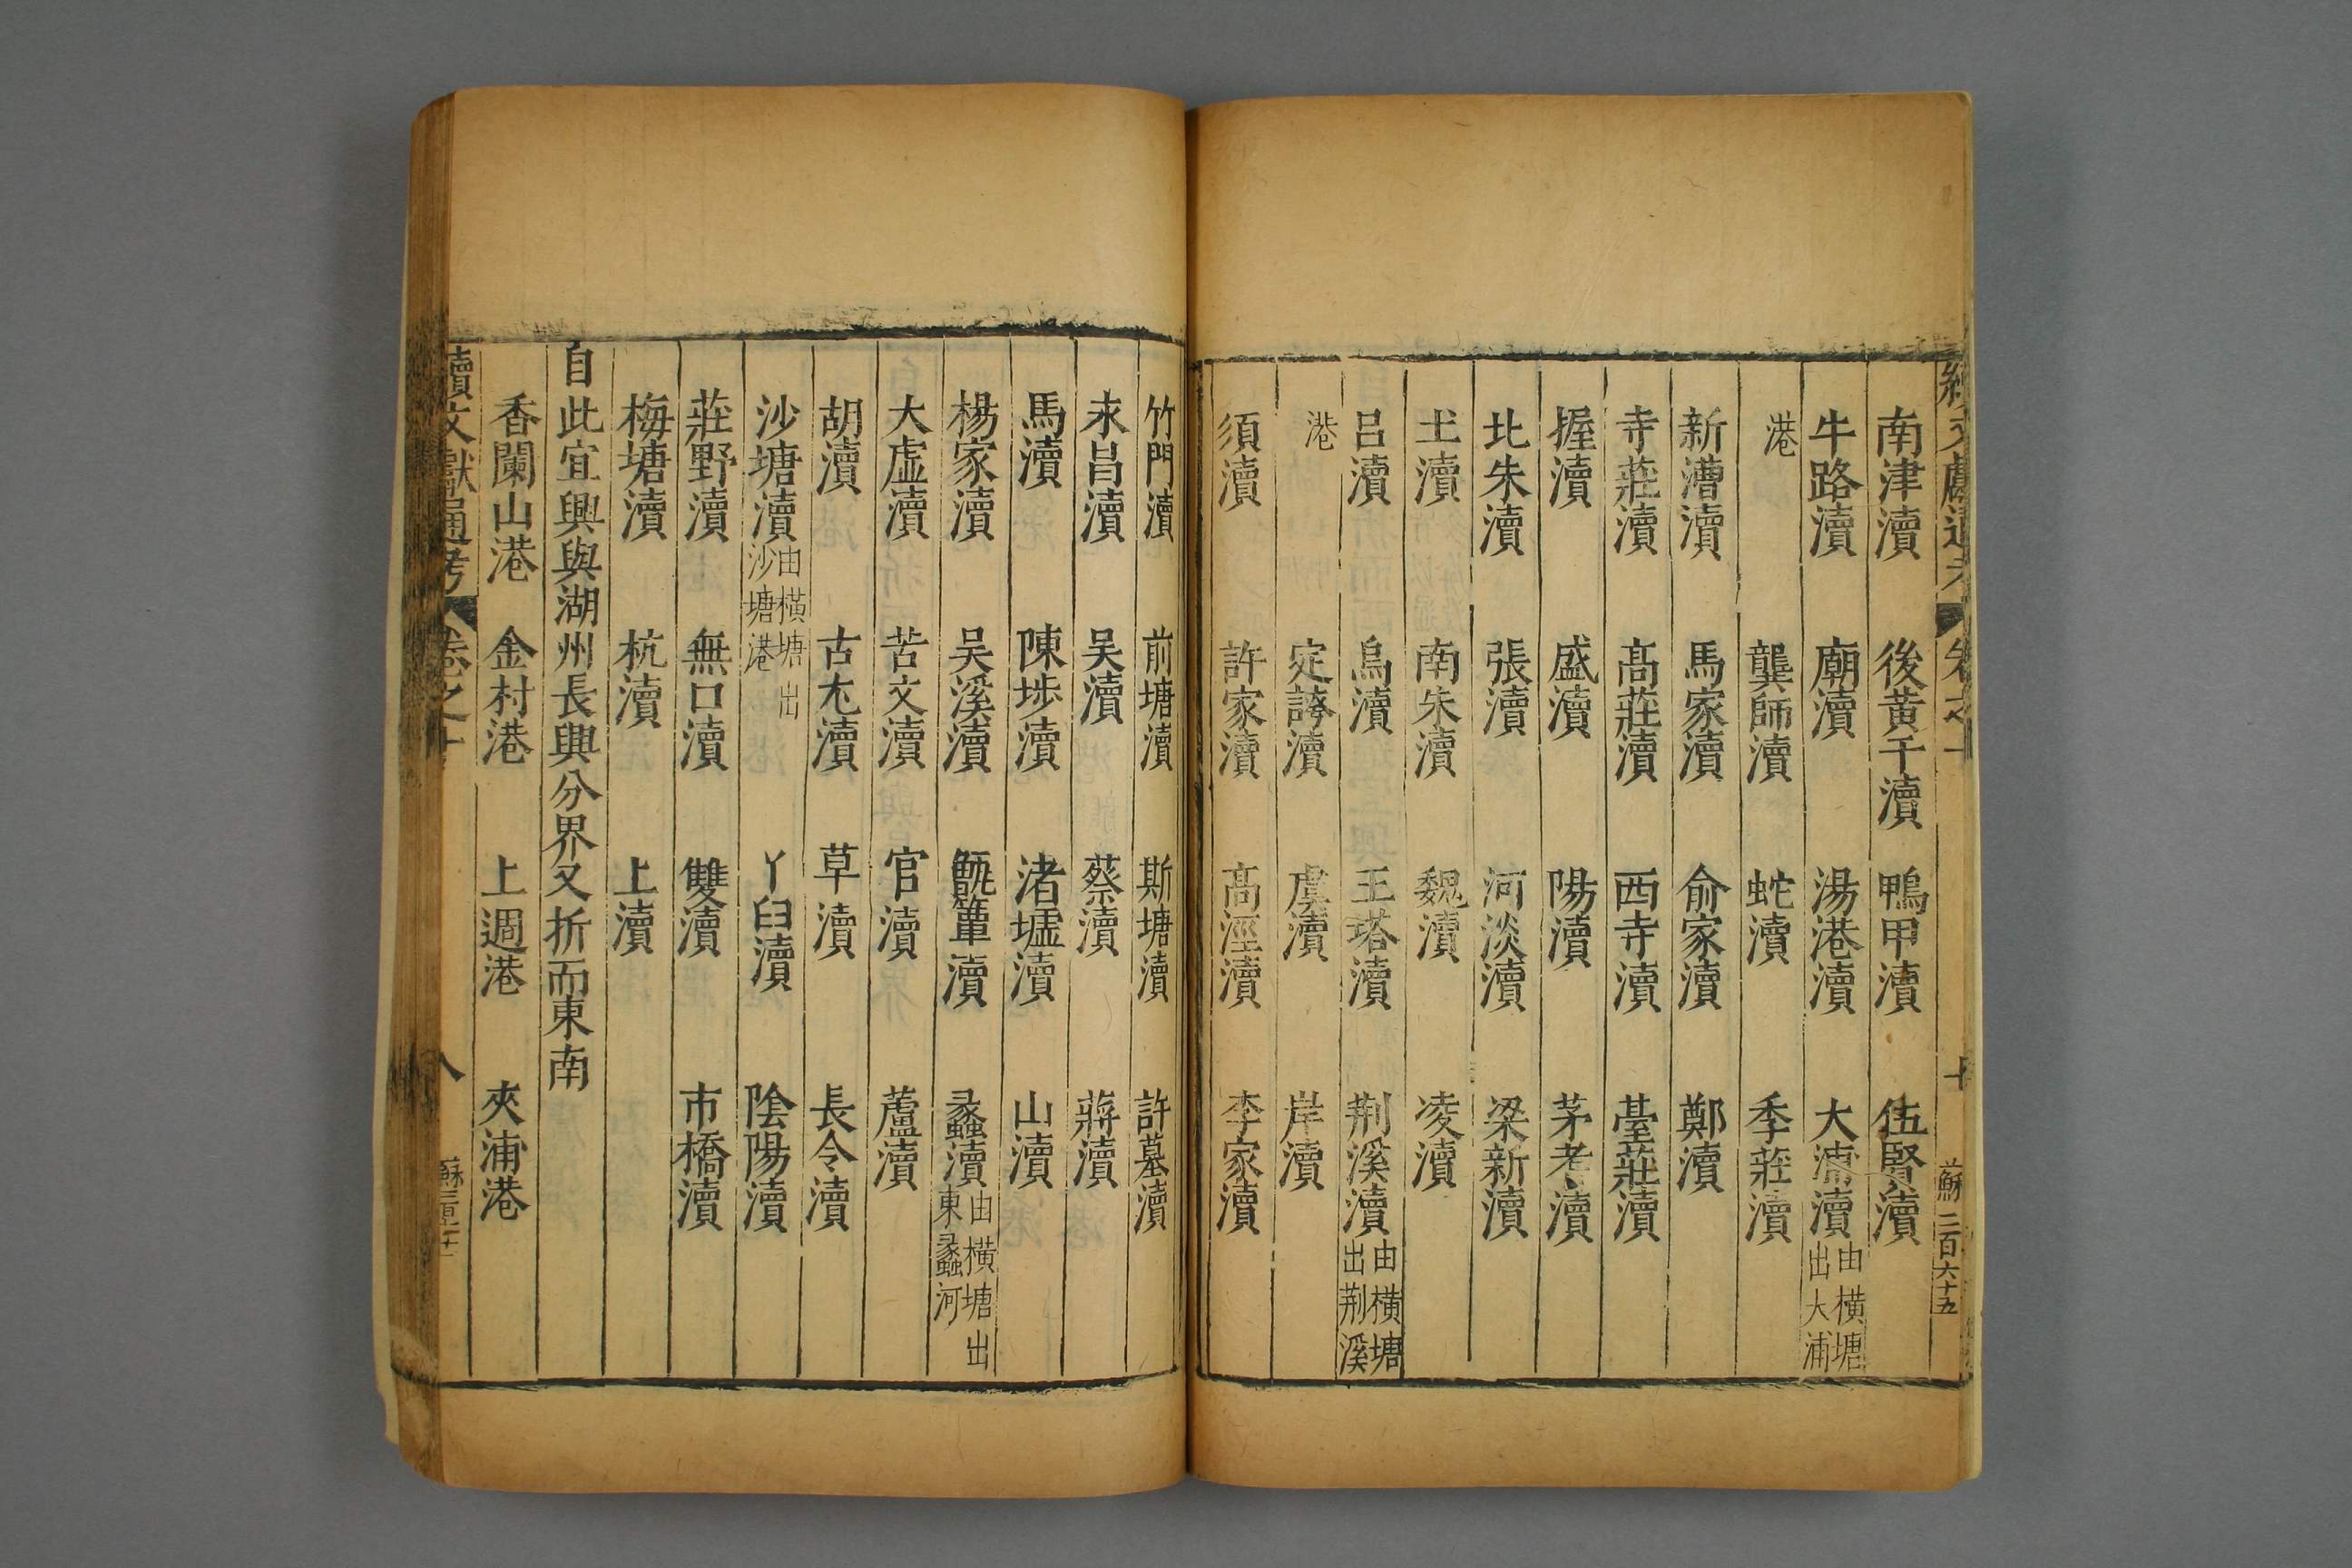 南津瀆 後黃干瀆 鴨甲瀆 伍賢瀆
牛路瀆 廟瀆 湯港瀆 大浦瀆由橫塘出大浦
港 龔師瀆 蛇瀆 季莊瀆
新漕瀆 馬家瀆 俞家瀆 鄭瀆
寺莊瀆 髙莊瀆 西寺瀆 臺莊瀆
握瀆 盛瀆 陽瀆 茅考瀆
北朱瀆 張瀆 河淡瀆 梁新瀆
王瀆 南朱瀆 魏瀆 凌瀆
呂瀆 烏瀆 王塔瀆 荆溪瀆由橫塘出荆溪
港 定誇瀆 虞瀆 岸瀆
須瀆 許家瀆 髙涇瀆 李家瀆
竹門瀆 前塘瀆 斯塘瀆 許墓瀆
永昌瀆 吴瀆 蔡瀆 蔣瀆
馬瀆 陳埗瀆 渚墟瀆 山瀆
楊家瀆 吴溪瀆 瀆 蠡瀆由橫塘出東蠡河
大虛瀆 苦文瀆 官瀆 蘆瀆
胡瀆 古瀆 草瀆 長令瀆
沙塘瀆由橫塘出沙塘港 丫臼瀆 陰陽瀆
莊野瀆 無口瀆 雙瀆 市橋瀆
梅塘瀆 杭瀆 上瀆
自此宜興與湖州長興分界又折而東南
香闌山港 金村港 上週港 夾浦港
續文獻通考 卷之十 八